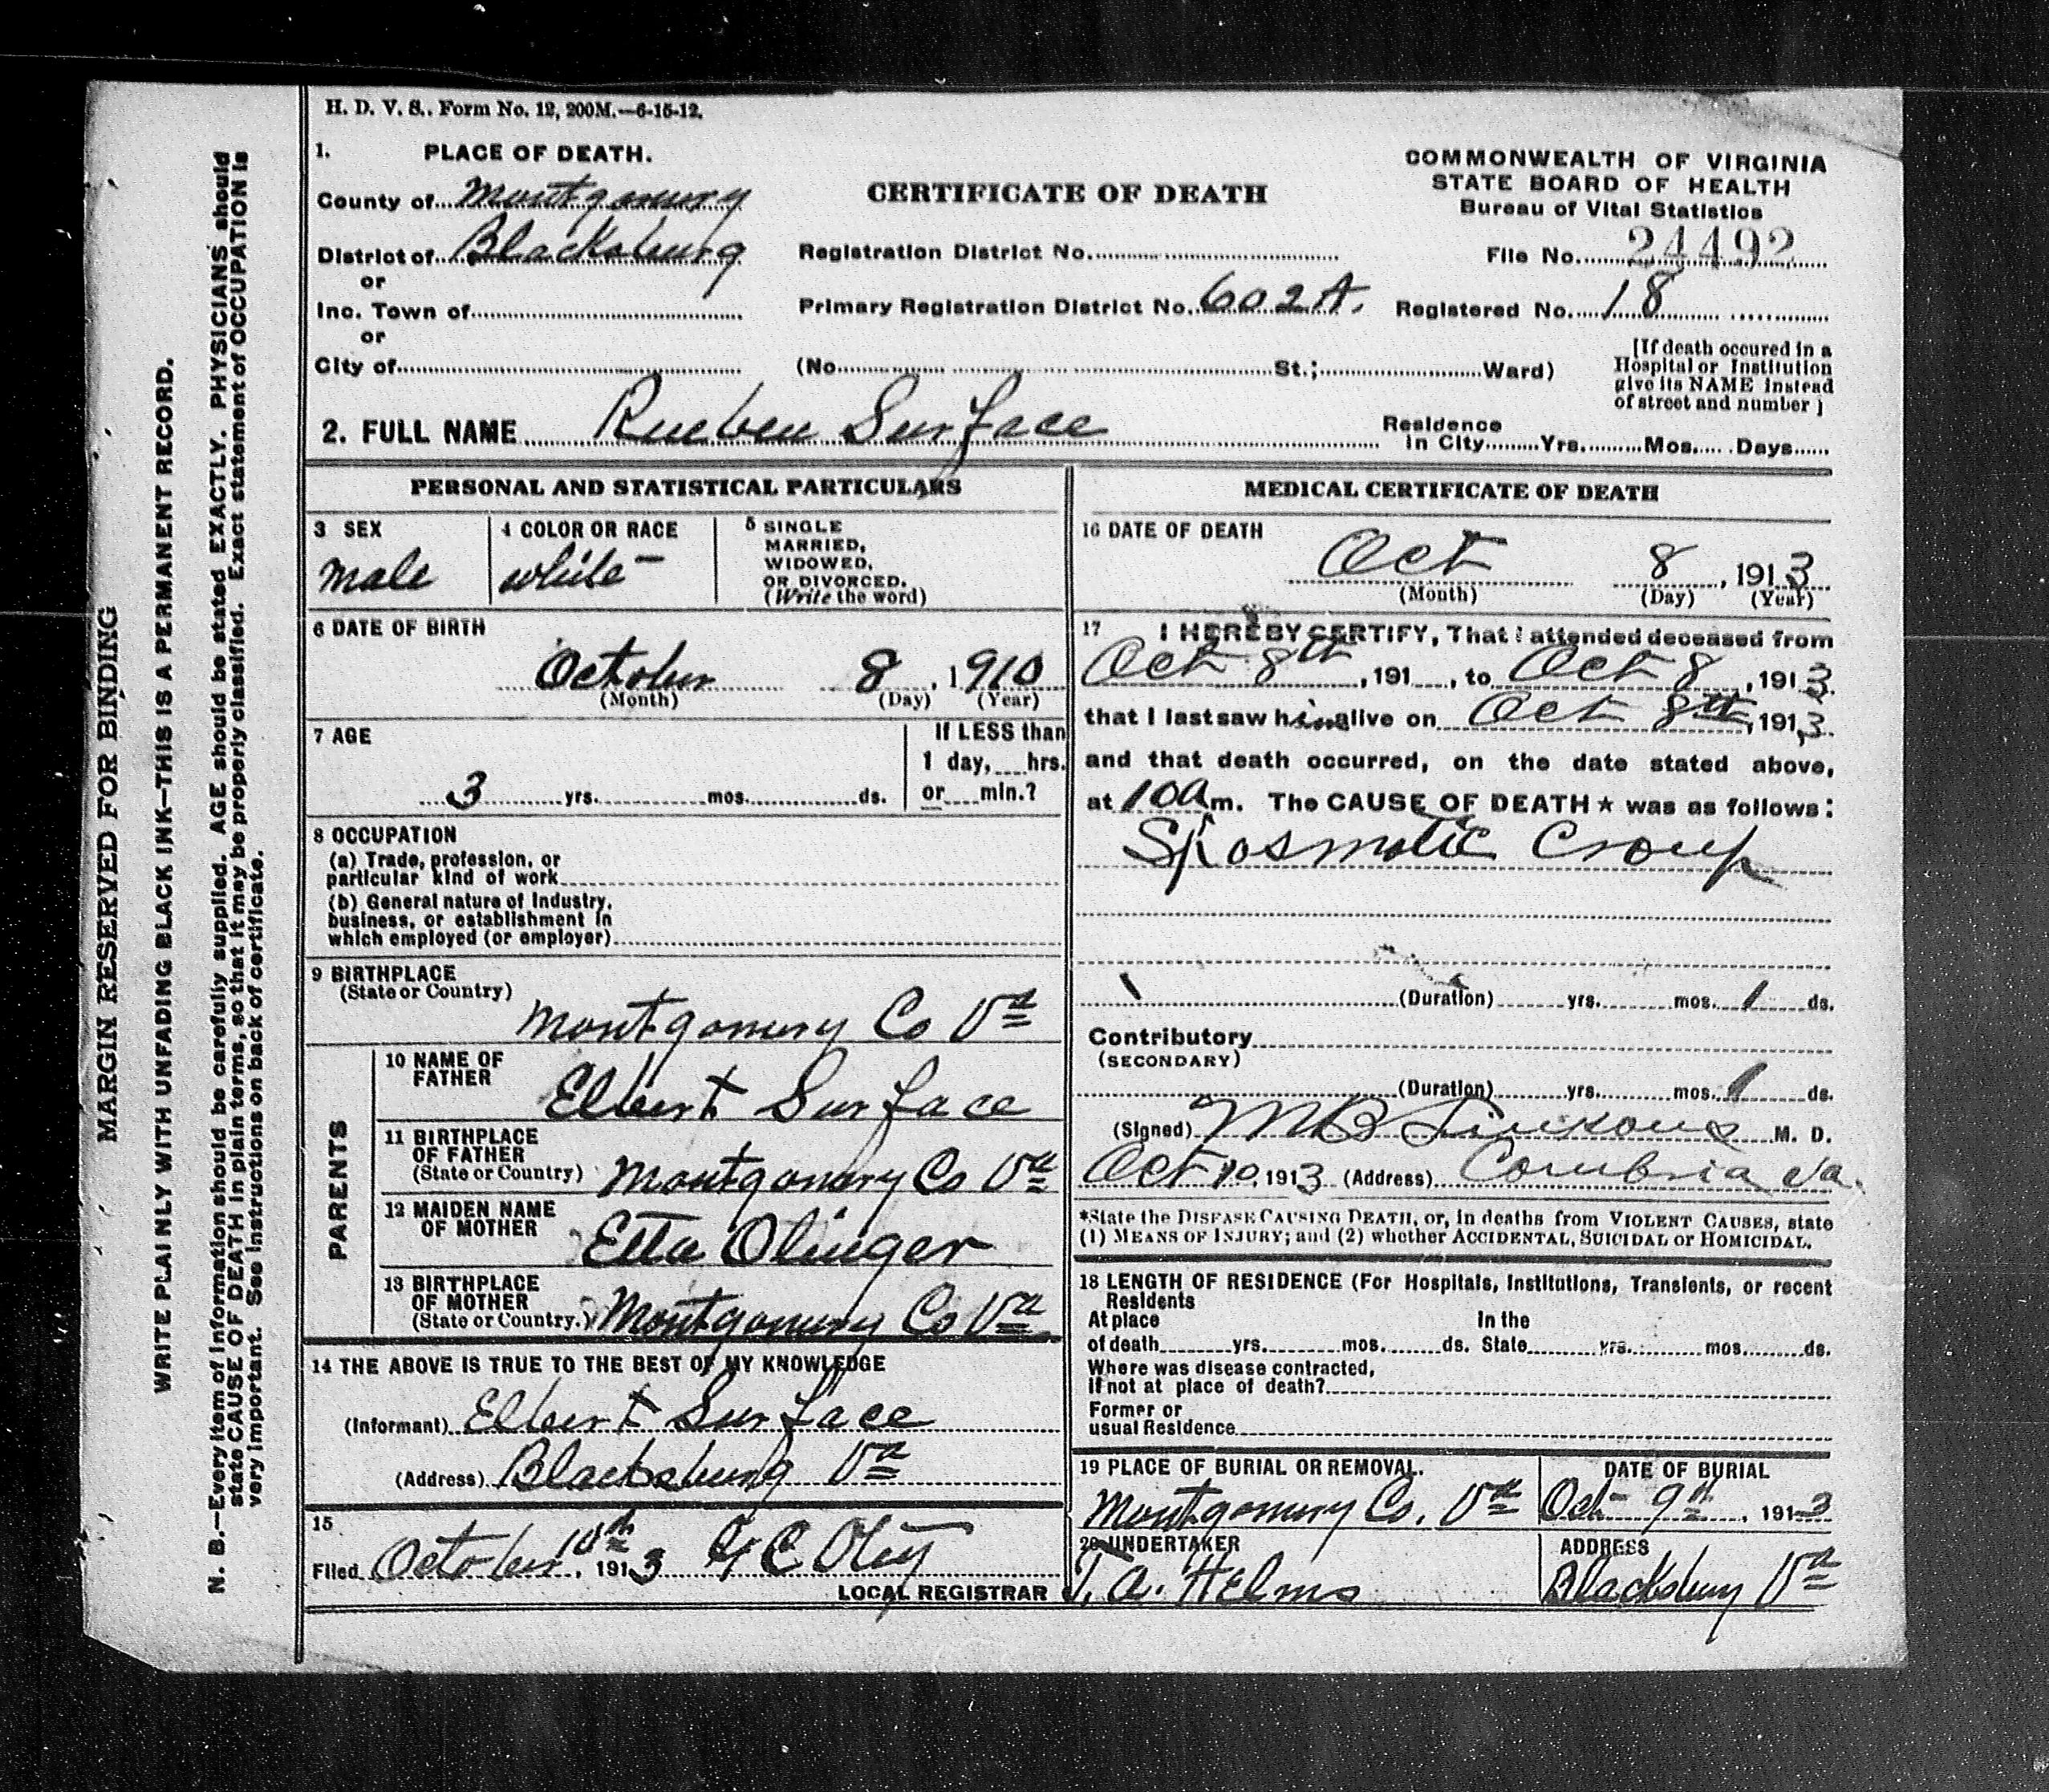 H. D. V. S.. Form No. 12, 200M.—6-15-12.
1. PLACE OF DEATH.
County of Montgomery
District of Blacksburg
or
Inc. Town of
or
City of
CERTIFICATE OF DEATH
Registration District No.
Primary Registration District No. 602A.
(No. St.; Ward)
COMMONWEALTH OF VIRGINIA
STATE BOARD OF HEALTH
Bureau of Vital Statistics
File No. 24492
Registered No. 18
[If death occured in a
Hospital or Institution
give its NAME instead
of street and number ]
2. FULL NAME Rueben Surface
Residence
in City Yrs. Mos. Days
PERSONAL AND STATISTICAL PARTICULARS
3 SEX
male
4 COLOR OR RACE
white
5 SINGLE
MARRIED,
WIDOWED,
OR DIVORCED.
(Write the word)
6 DATE OF BIRTH
October 8, 1910
(Month) (Day) (Year)
7 AGE
3 yrs. mos. ds.
If LESS than
1 day, hrs.
or min.?
8 OCCUPATION
(a) Trade, profession, or
particular kind of work
(b) General nature of Industry,
business, or establishment in
which employed (or employer)
9 BIRTHPLACE
(State or Country)
Montgomery Co Va
PARENTS
10 NAME OF
FATHER
Elbert Surface
11 BIRTHPLACE
OF FATHER
(State or Country) Montgomery Co Va
12 MAIDEN NAME
OF MOTHER
Etta Olinger
13 BIRTHPLACE
OF MOTHER
(State or Country.) Montgomery Co Va
14 THE ABOVE IS TRUE TO THE BEST OF MY KNOWLEDGE
(Informant) Elbert Surface
(Address) Blacksburg Va
15
Filed October 10th, 1913
LOCAL REGISTRAR
MEDICAL CERTIFICATE OF DEATH
16 DATE OF DEATH
Oct 8, 1913
(Month) (Day) (Year)
17 I HEREBY CERTIFY, That I attended deceased from
Oct 8th, 191 , to Oct 8, 1913.
that I last saw him alive on Oct 8th, 1913.
and that death occurred, on the date stated above,
at 10 a m. The CAUSE OF DEATH ★ was as follows:
Sposmotic Croup
(Duration) yrs. mos. 1 ds.
Contributory
(SECONDARY)
(Duration) yrs. mos. 1 ds.
(Signed) M. D.
Oct 10, 1913 (Address) Va.
*State the DISEASE CAUSING DEATH, or, in deaths from VIOLENT CAUSES, state
(1) MEANS OF INJURY; and (2) whether ACCIDENTAL, SUICIDAL or HOMICIDAL.
18 LENGTH OF RESIDENCE (For Hospitals, Institutions, Transients, or recent
Residents
At place In the
of death yrs. mos. ds. State yrs. mos. ds.
Where was disease contracted,
If not at place of death?
Former or
usual Residence
19 PLACE OF BURIAL OR REMOVAL.
Montgomery Co. Va
DATE OF BURIAL
Oct 9th, 1913
20 UNDERTAKER
T. A. Helms
ADDRESS
Blacksburg Va
MARGIN RESERVED FOR BINDING
WRITE PLAINLY WITH UNFADING BLACK INK—THIS IS A PERMANENT RECORD.
N. B.—Every item of information should be carefully supplied. AGE should be stated EXACTLY. PHYSICIANS should
state CAUSE OF DEATH in plain terms, so that it may be properly classified. Exact statement of OCCUPATION is
very important. See instructions on back of certificate.